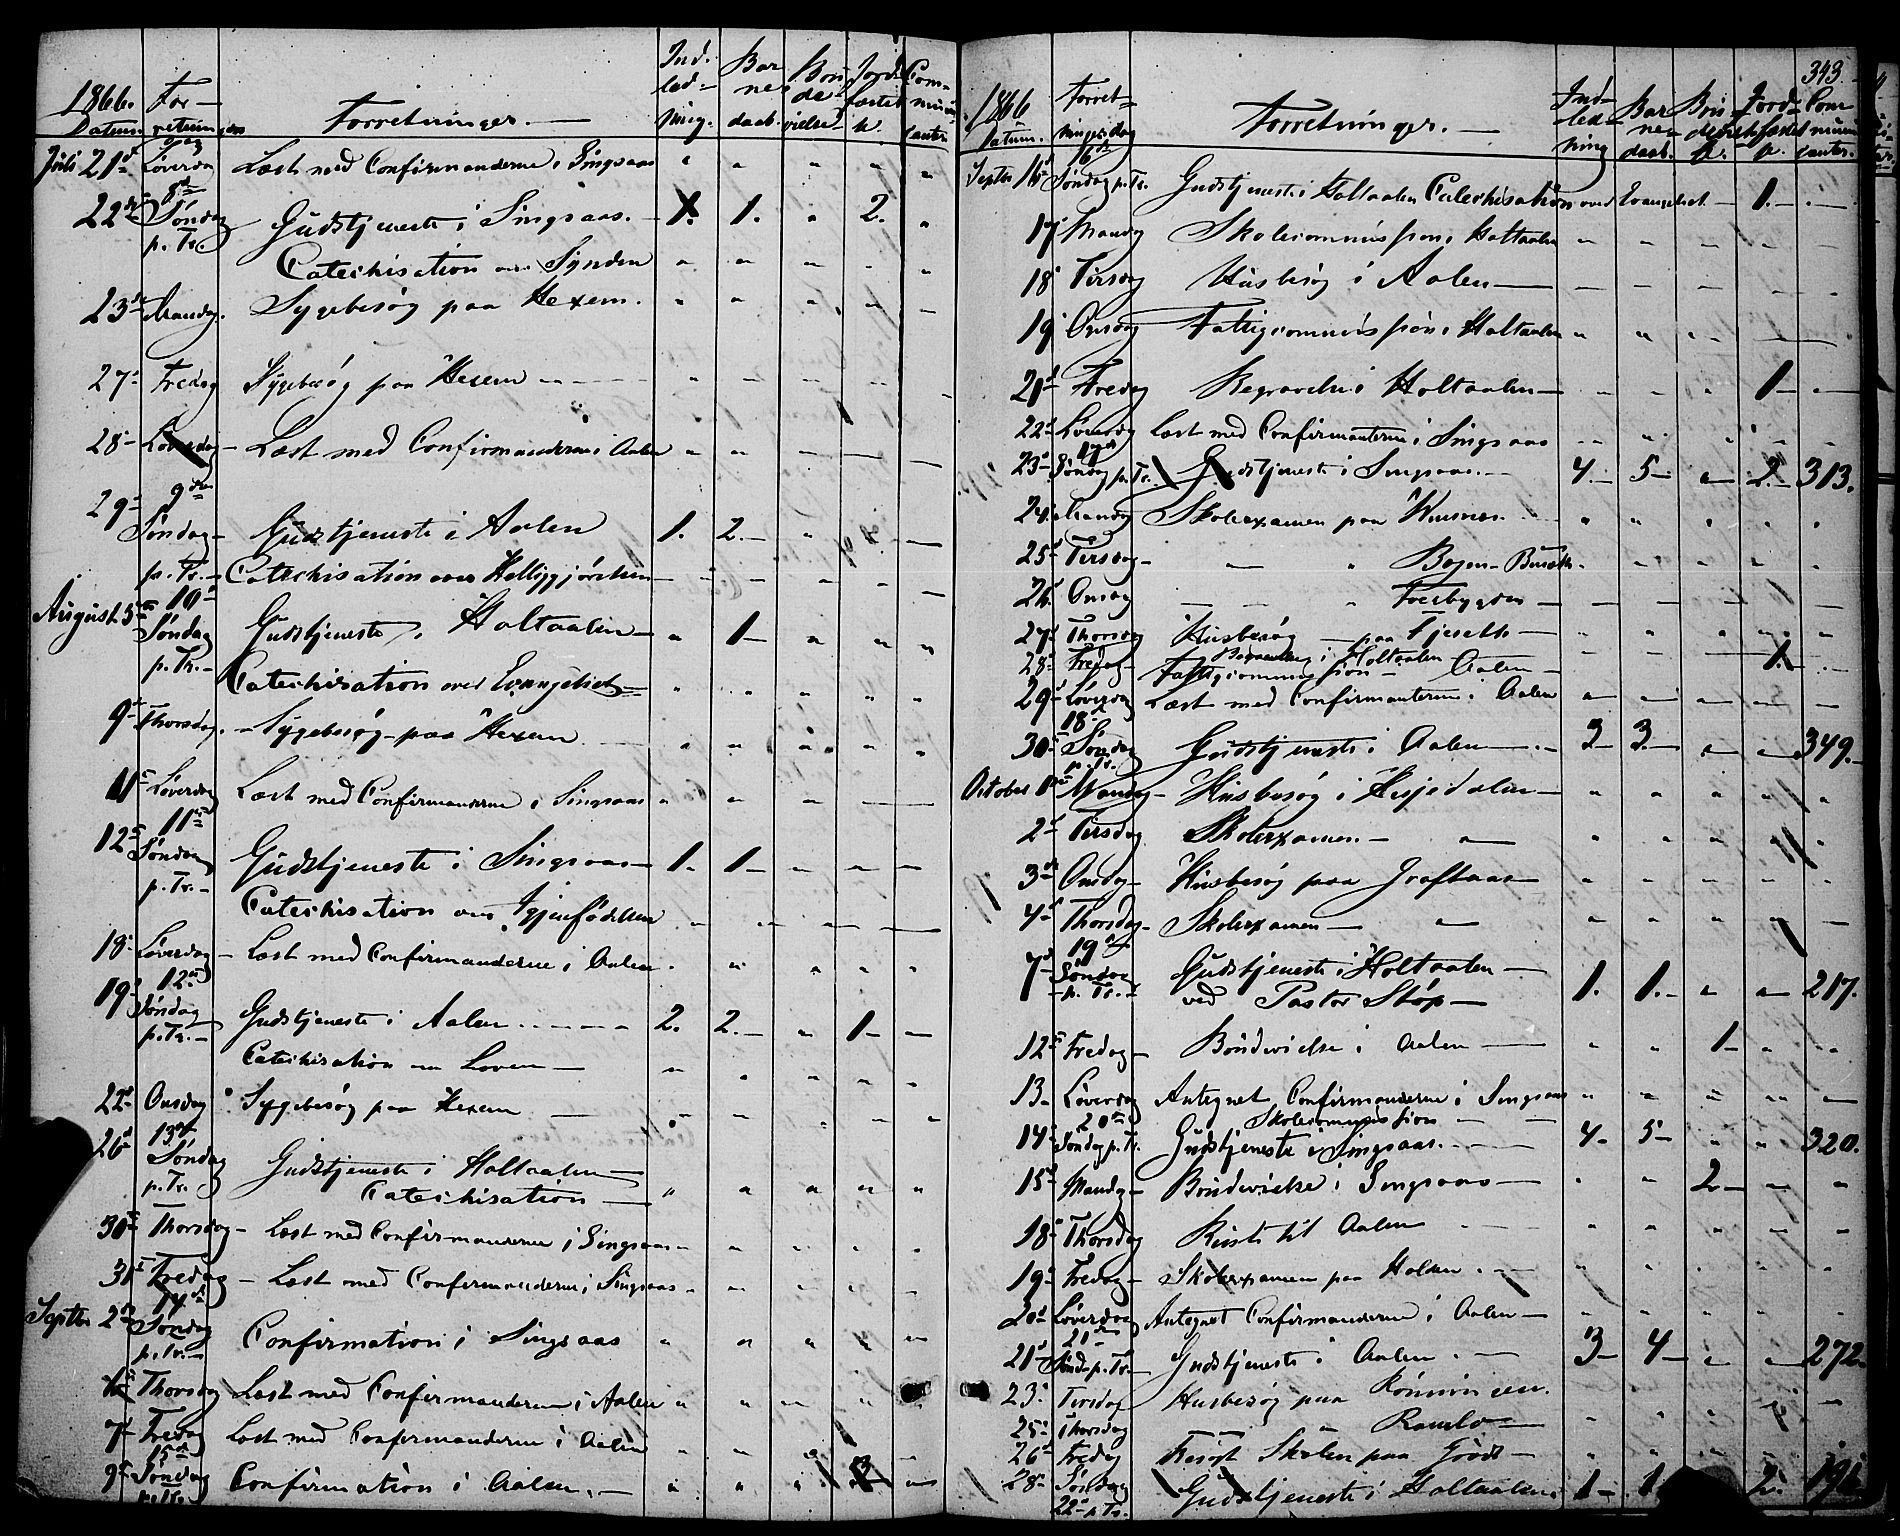 1866. For- Forretninger. Ind- Bar Bru Jords Com-
Datum. retnings dag led- ne- de- fæstel muni
ning. daab. vielse canter
Juli 21de Løverdag Læst med Confirmanderne i Singsaas " " " " "
22de 8de Søndag p. Tr. Gudstjeneste i Singsaas. 1. 1. " 2. "
Catechisation over Synden " " " " "
23de Mandag. Sygebesøg paa Hexem. " " " - -
27de Fredag Sygebesøg paa Hexem - - -
28de Løverdag - Læst med Confirmanderne i Aalen " " - - -
29de 9de Søndag p. Tr. Gudstjeneste i Aalen 1. 2. "
Catechisation over Helliggjørelsen
August 5te 10de Søndag p. Tr. Gudstjeneste i Holtaalen " 1 " " "
Catechisation over Evangeliet " " " " "
9de Thorsdag. Sygebesøg paa Hexem " " " " "
11te Løverdag Læst med Confirmanderne i Singsaas " " - - -
12te 11te Søndag p. Tr. Gudstjeneste i Singsaas 1. 1 - - -
Catechisation over Igjenfødelsen
18de Løverdag - Læst med Confirmanderne i Aalen " " " "
19de 12te Søndag p. Tr. Gudstjeneste i Aalen 2. 2. " 1 -
Catechisation over Loven - " " " " "
22de Onsdag Sygebesøg paa Hexem -
26de 13de Søndag p. Tr. Gudstjeneste i Holtaalen
Catechisation " " " " "
30te Thorsdag - Læst med Confirmanderne i Singsaas
31te Fredag - Læst med Confirmanderne i Singsaas
Septbr 2den 14de Søndag p. Tr. Confirmation i Singsaas " " " " -
Thorsdag Læst med Confirmanderne i Aalen " " - " "
7de Fredag Læst med Confirmanderne i Aalen
9de 15de Søndag p. Tr. Confirmation i Aalen. " "
343.
1866 Forret- Forretninger. Ind- Bar Bru Jords- Com
Datum. ningsdag led- ne- muni
ning daab. canter.
Septbr 16de 16de Søndag p. Tr. Gudstjeneste i Holtaalen Catechisation over Evangeliet - 1. -
17 Mandag Skolecommission i Holtaalen - - - - -
18 Tirsdag Husbesøg i Aalen - - - - -
19 Onsdag Fattigcommission i Holtaalen " " " "
21de Fredag Begravelse i Holtaalen - - - 1 -
22de Løverdag Læst med Confirmanterne i Singsaas
23de 17de Søndag p. Tr. Gudstjeneste i Singsaas. 4. 5 - 2 313.
24. Mandag Skoleexamen paa
25de Tirsdag - - "
26. Onsdag - - "
27de Thorsdag Husbesøg - paa
28de Fredag - Begravelse i Holtaalen 1.
Fattigcommission - Aalen -
29de Løverdag Læst med Confirmanterne i Aalen - - - - -
30te 18de Søndag p. Tr. Gudstjeneste i Aalen 3 3. - - 349.
October 1ste Mandag - Husbesøg i Hesjedalen - " " " " "
2de Tirsdag Skoleexamen - "
3de Onsdag - Husbesøg paa Graftaas - - - - -
4de Thorsdag - Skoleexamen - "
7de 19de Søndag p. Tr. Gudstjeneste i Holtaalen - 1. 1. - - 217.
ved Pastor Støp -
12te Fredag - Brudevielse i Aalen - " " 1 " "
13. Løverdag Antegnet Confirmanderne i Singsaas " " " " -
Skolecommission
14de 20de Søndag p. Tr. Gudstjeneste i Singsaas. 4 5 " " 320.
15de Mandag - Brudevielse i Singsaas - " " 2 - -
18de Thorsdag Reist til Aalen
19de Fredag - Skoleexamen paa
20de Løverdag Antegnet Confirmanderne i Aalen -
21de 21de Sønd. p. Tr. Gudstjeneste i Aalen. 3 4 - - 272
23. Tirsdag Husbesøg paa
25. Thorsdag "
26de Fredag Skolen paa
28de Søndag 22de p. Tr. Gudstjeneste i Holtaalen. 1 1 2.